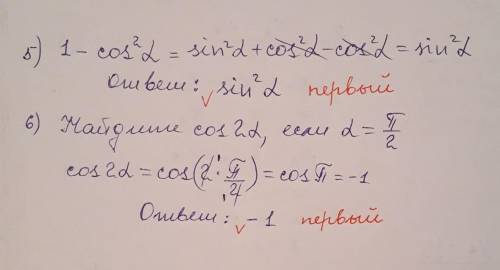 5) 1 - cos²α = sin²α + cos²α - cos²α = sin²α
Ответ: ✓ sin²α первый
6) Найдите cos 2α, если α = π/2
cos 2α = cos(2 · π/2) = cos π = -1
Ответ: ✓ -1 первый